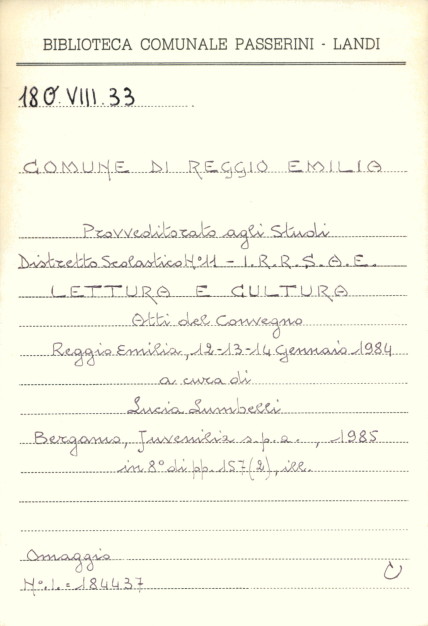 BIBLIOTECA COMUNALE PASSERINI - LANDI
180.VIII.33
COMUNE DI REGGIO EMILIA
Provveditorato agli Studi
Distretto Scolastico N°11 - I.R.R.S.A.E.
LETTURA E CULTURA
Atti del Convegno
Reggio Emilia, 12-13-14 Gennaio 1984
a cura di
Lucia Lumbelli
Bergamo, Juvenilia s.p.a. , 1985
in 8° di pp. 157(2), ill.
Omaggio
N°.I.= 184437